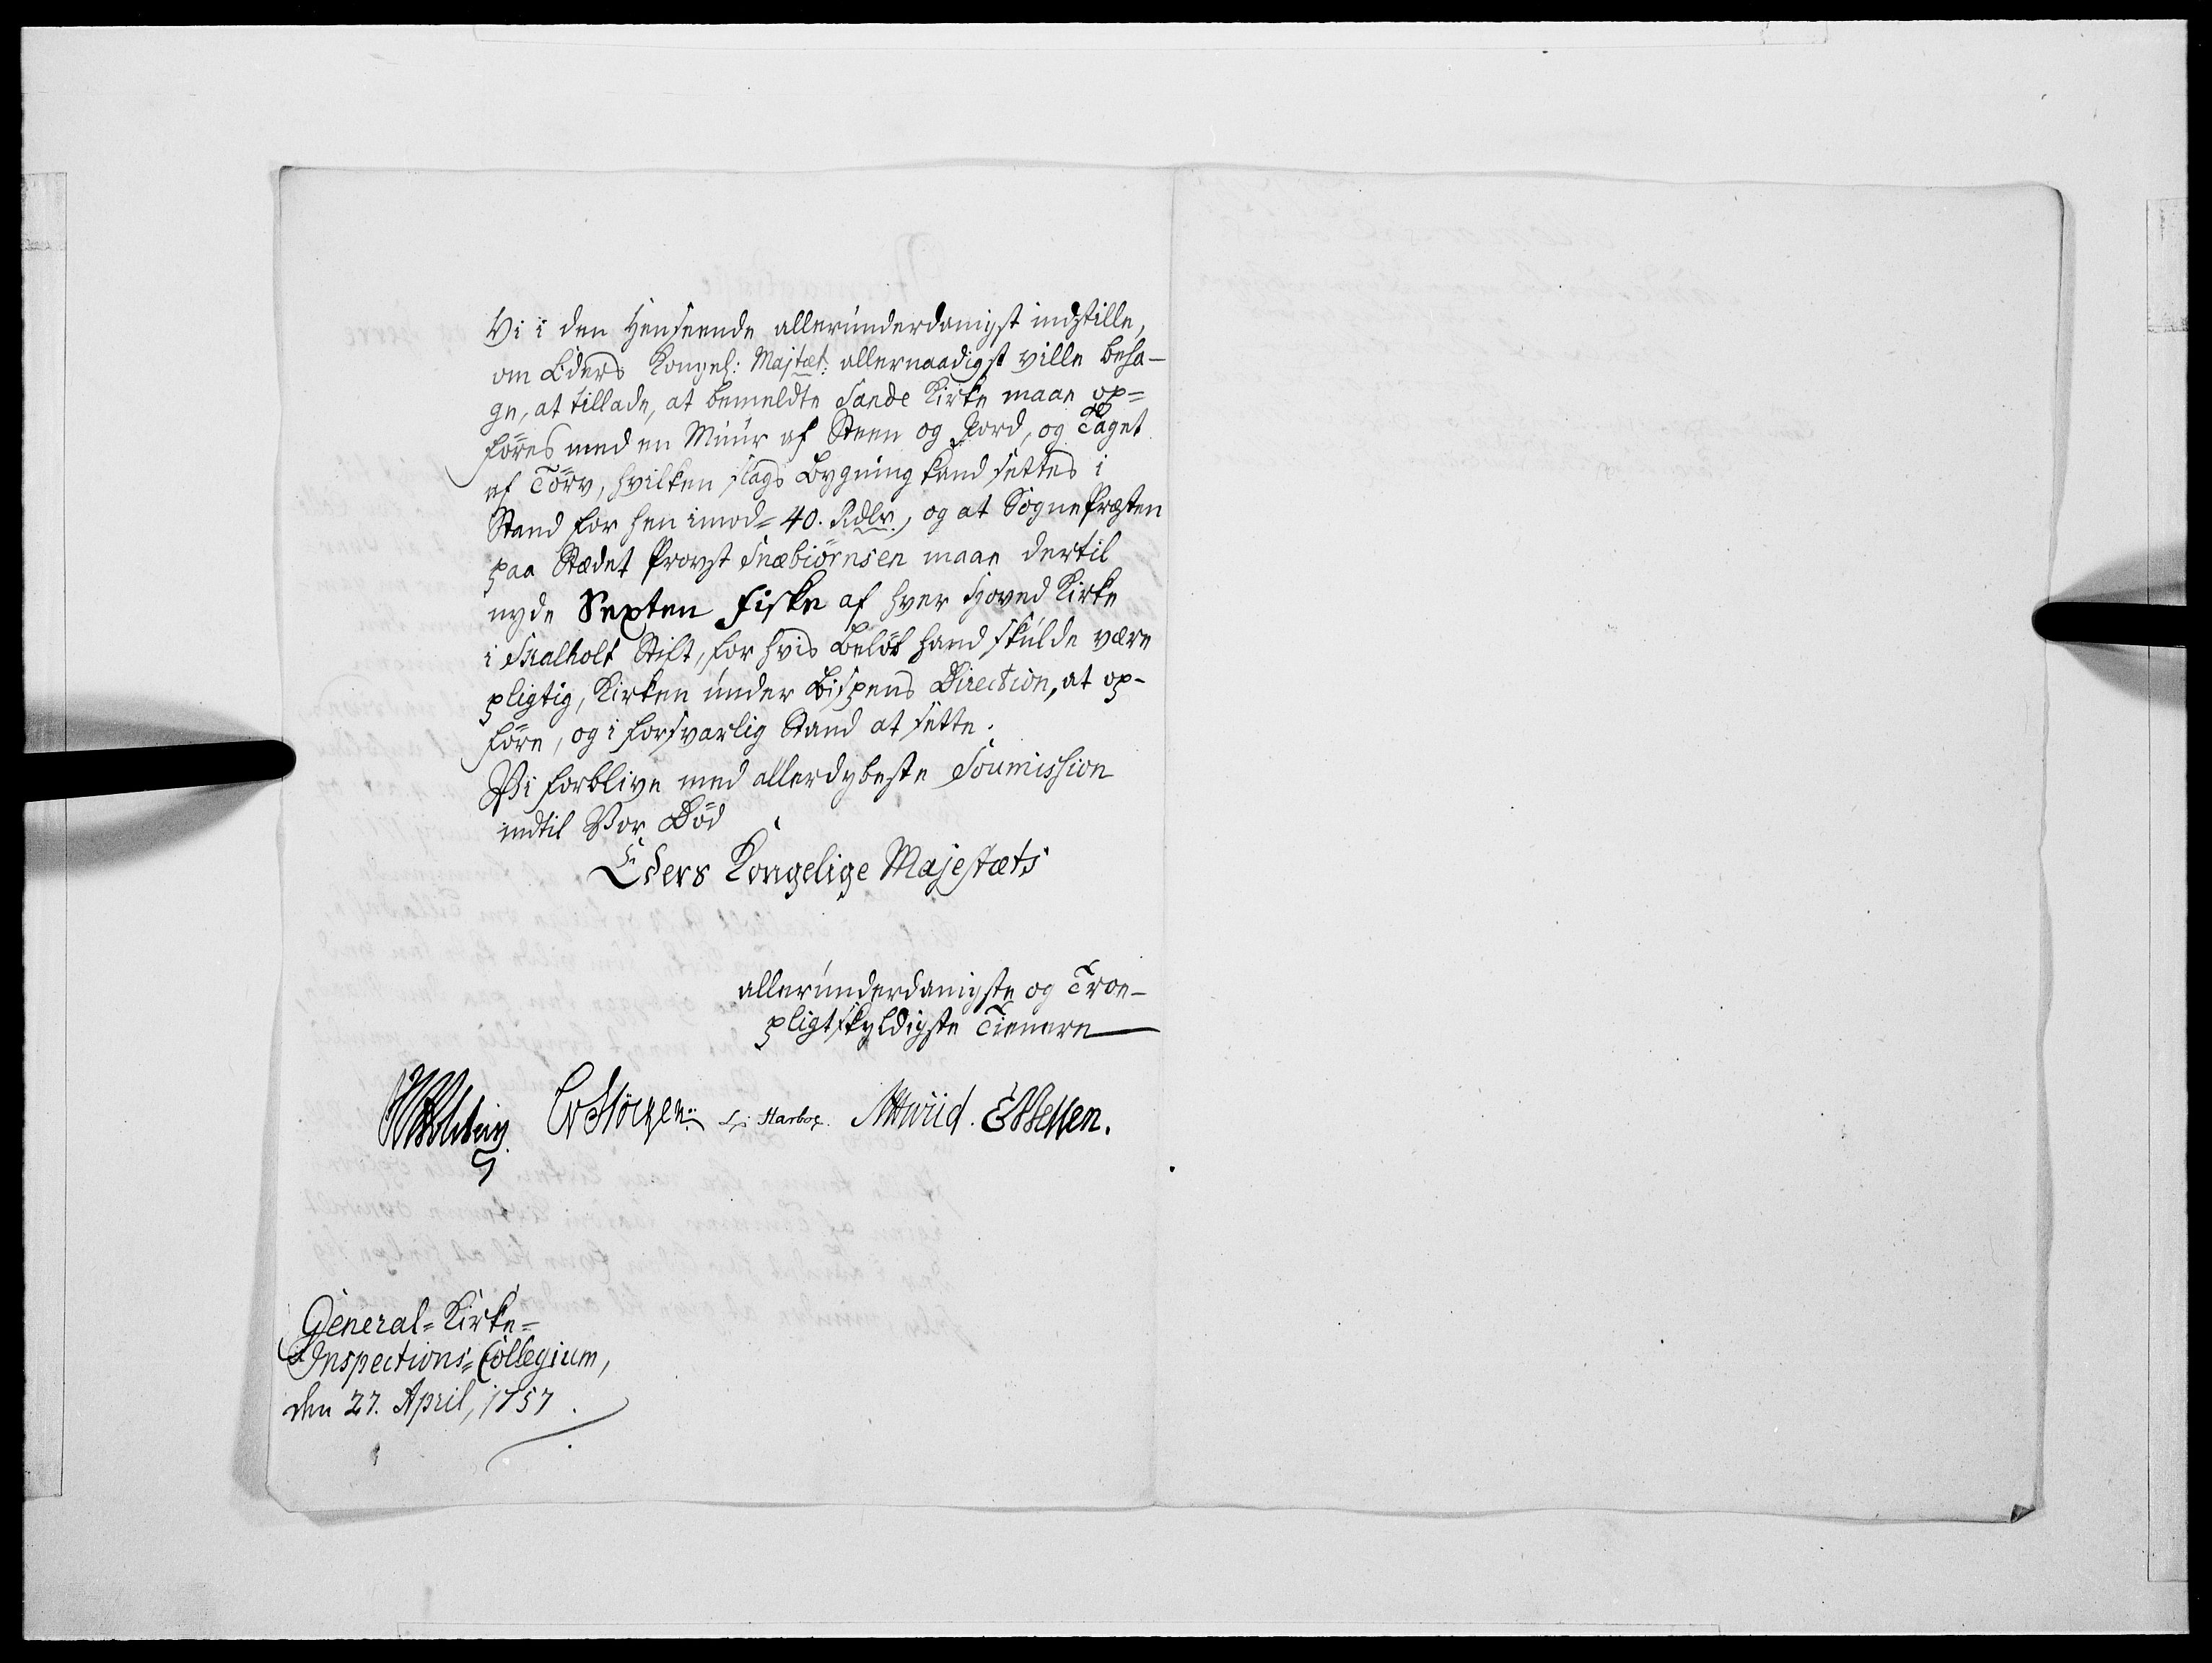 Vi i den Henseende allerúnderdanigst indstille,
om Eders Kongel: Majtæt: allernaadigst ville beha-
ge, at tillade, at bemeldte Sande Kirke maae op=
föres med en Múúr af Steen og Jord, og Taget
af Törv, hvilken slags Bygning kand settes i
Stand for hen imod= 40. Rdlr., og at Sogne Præsten
paa Stædet Provst Snæbiörnsen maae dertil
nyde Sexten Fiske af hver Hoved Kirke
i Skalholt Stift, for hvis Belöb hand skúlde være
pligtig, Kirken únder Bispens Direction, at op-
före, og i forsvarlig Stand at sette.
Vi forblive med allerdybeste Soumission
indtil Vor Död
Eders Kongelige Majestæts
allerúnderdanigste og Troe-
pligtskyldigste Tienere
Holstein CvStöcken L: Harboe. MWiid. EHessen.
General=Kirke=
Inspections=Collegium,
den 27. April, 1757.